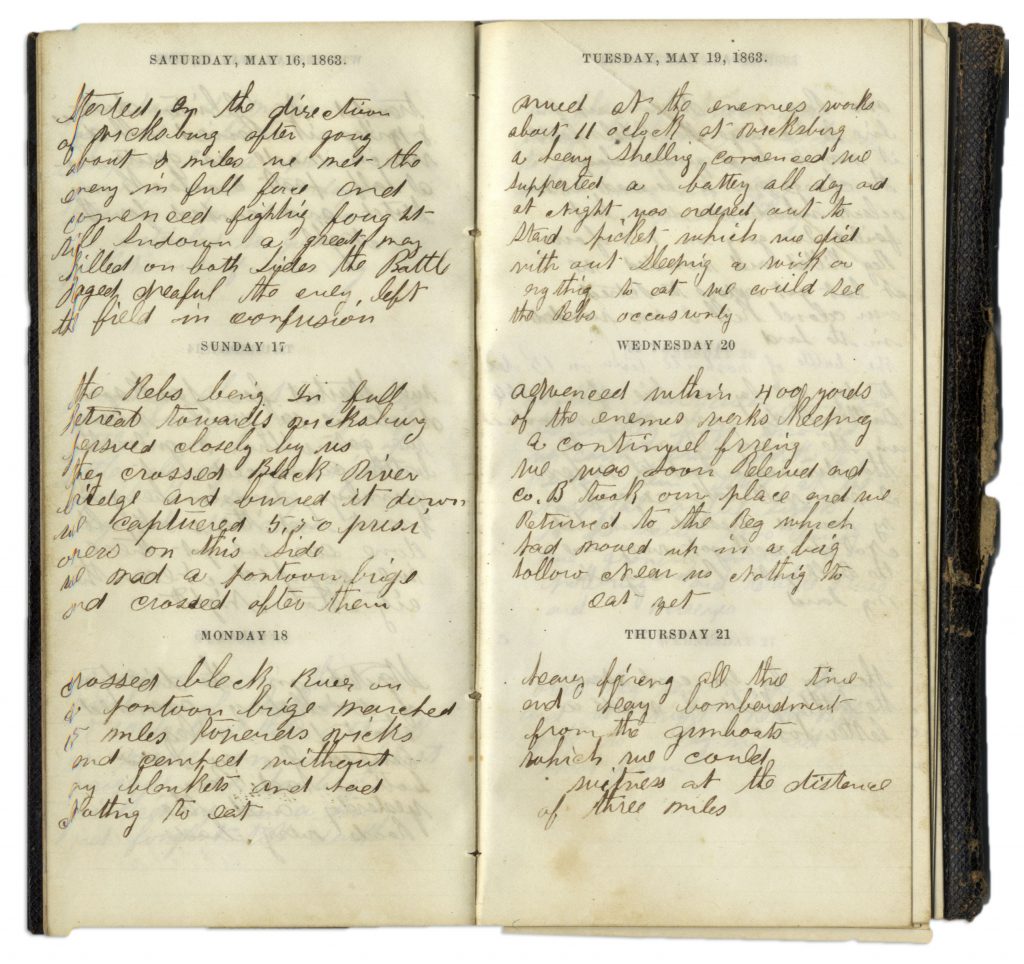 SATURDAY, MAY 16, 1863.
Sterted in the direction
of vicksburg after gong
about 8 miles we met the
enemy in full force and
comenced fighting fought
till Sndown a great may
killed on both Sydes the Battle
raged dreaful the eney left
the field in confusion
SUNDAY 17
the Rebs being In full
retreat towards vicksburg
persued closely by us
they crossed Black River
bridge and burned it down
we captuered prisi
oners on this Side
we mad a pontoon brige
and crossed after them
MONDAY 18
crossed black River on
a pontoon brige marched
15 miles towards vicks
and camped without
any blankets and had
Nothing to eat
TUESDAY, MAY 19, 1863.
arived at the enemies works
about 11 oclock at vicksburg
a heavy Shelling comenced we
Supported a battey all day and
at Night was ordered out to
Stand picket which we died
with out Sleeping a wink or
enything to eat we could See
the Rebs occasionly
WEDNESDAY 20
advenced within 400 yards
of the enemies works Keeping
a continuel
we was Soon Releived and
co. B took our place and we
Returned to the Reg which
had moved up in a big
hollow Near us Nothing to
eat yet
THURSDAY 21
heavy fireng all the time
and heavy bombardment
from the gunboats
which we could
witness at the distence
of three miles